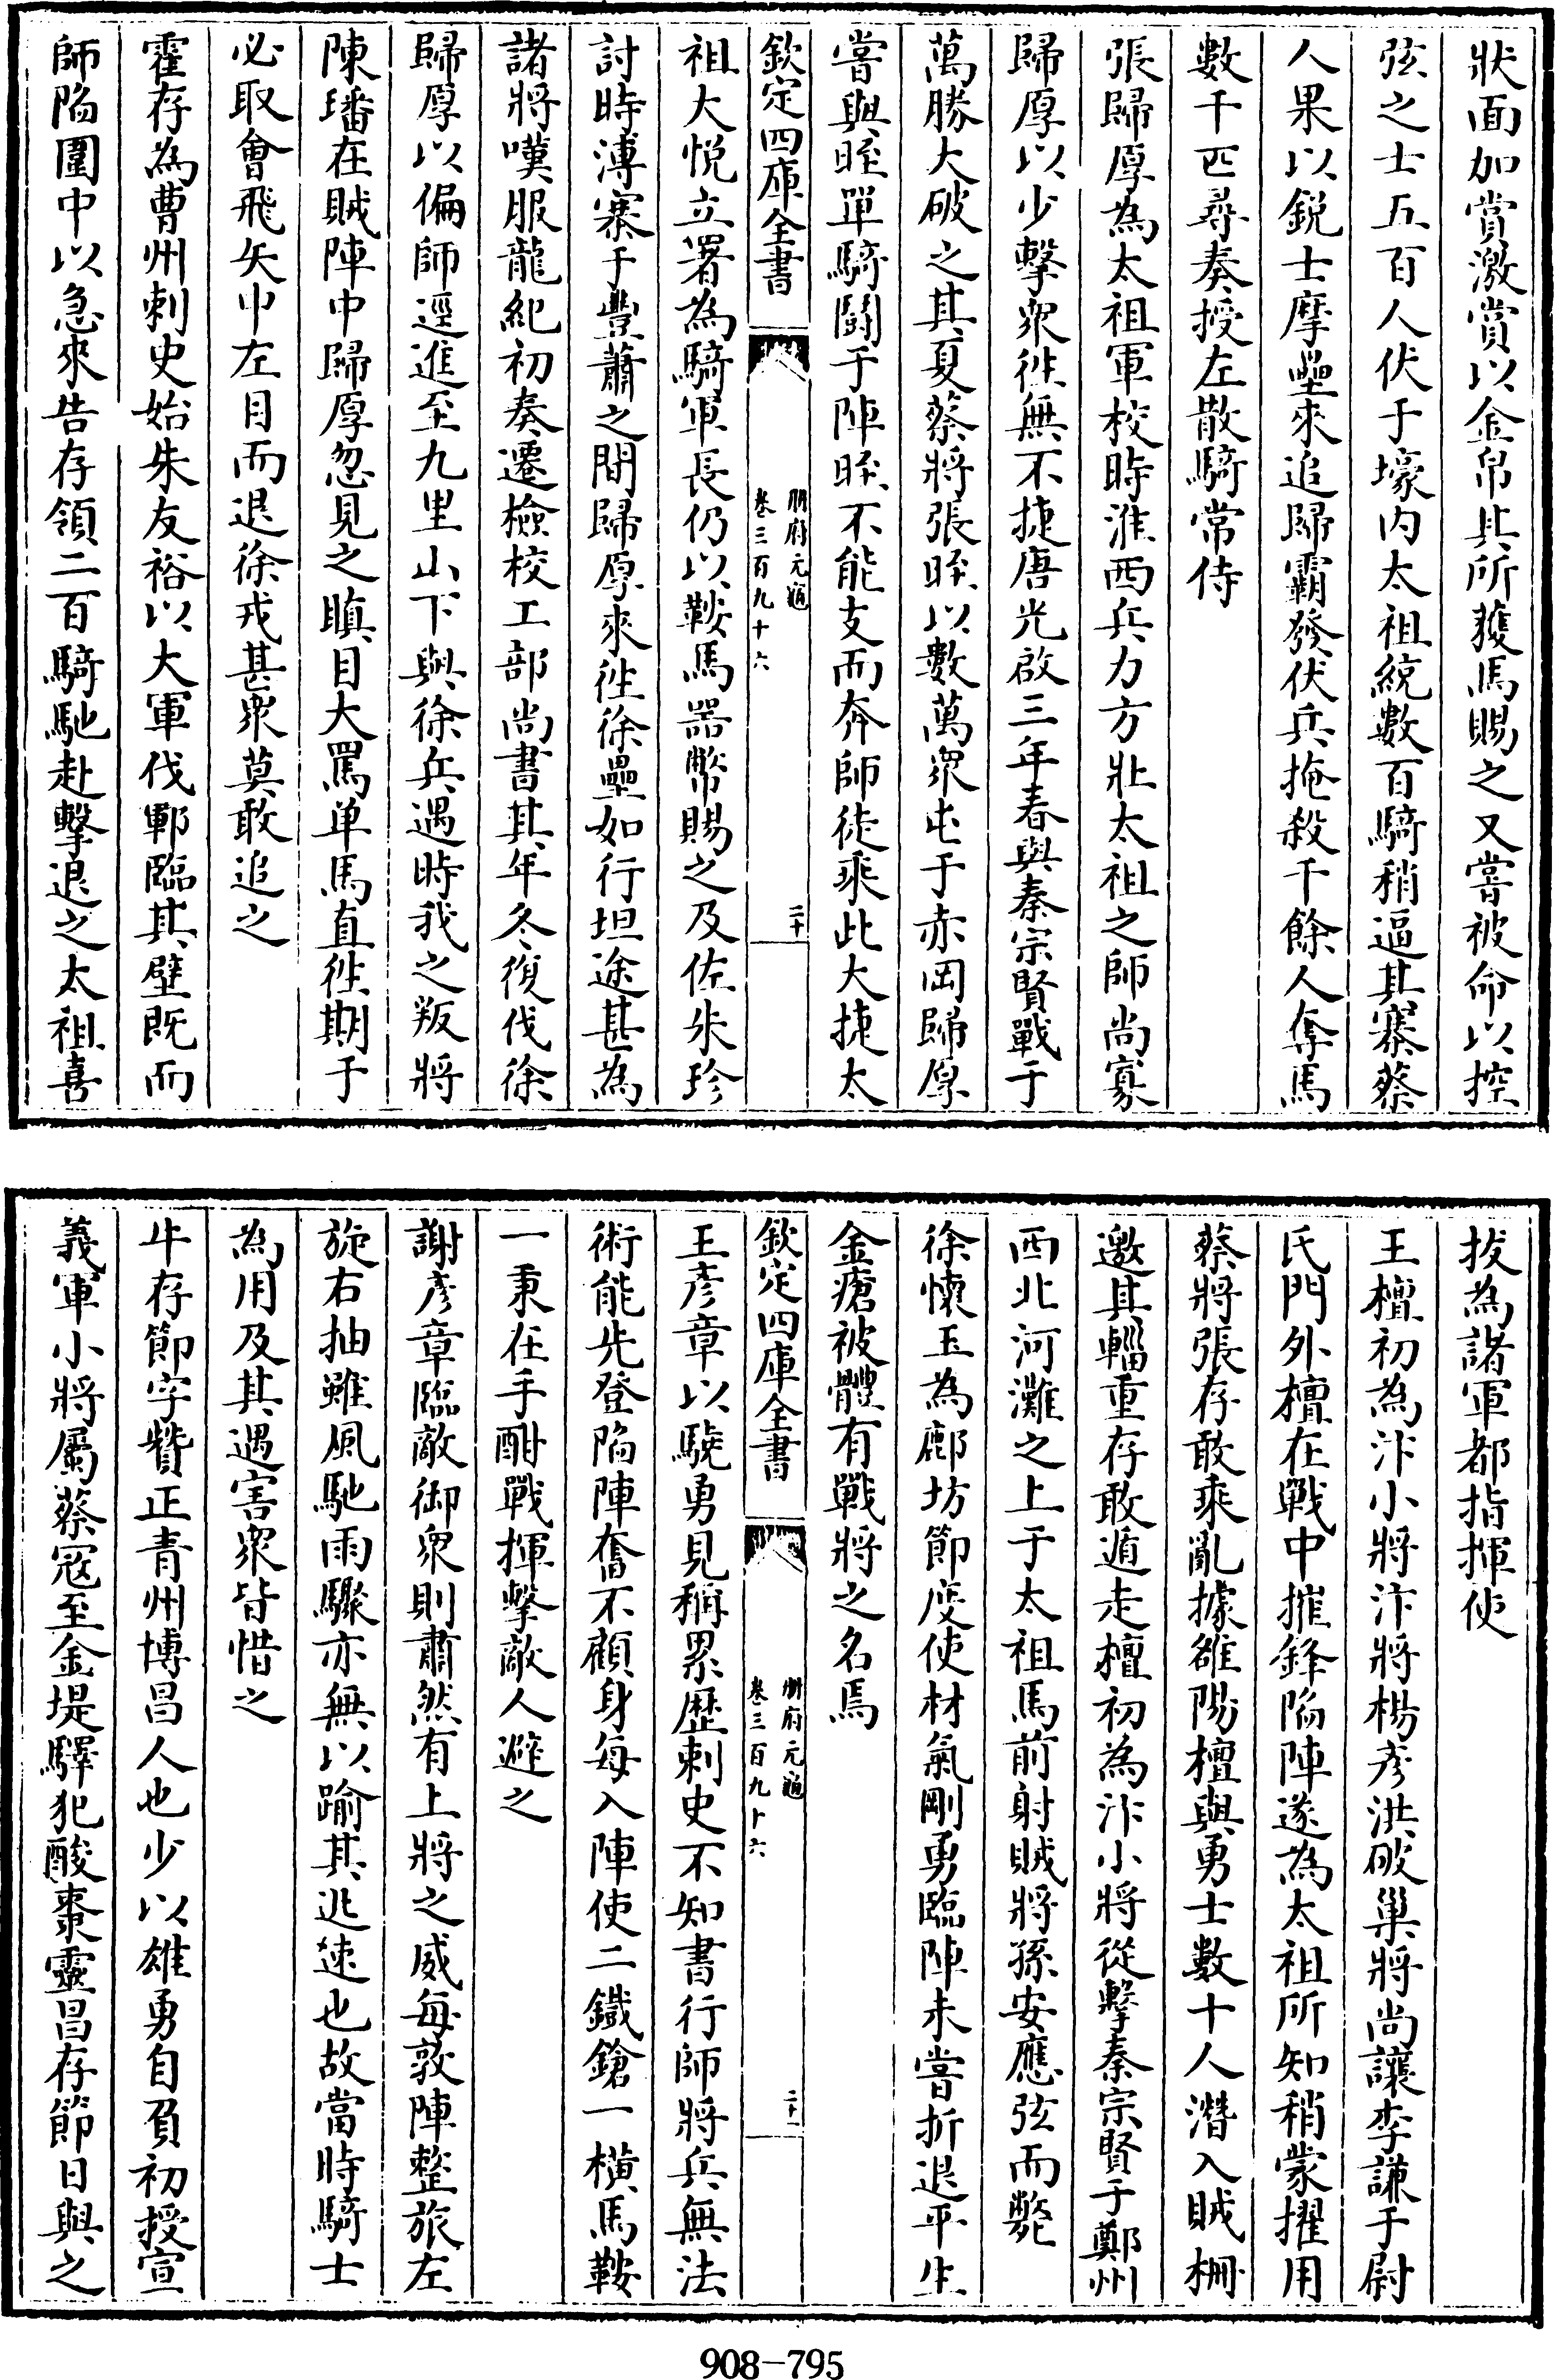 狀面加賞激賞以金帛具所獲馬賜之又嘗被命以控
弦之士五百人伏于壕内太祖統數百騎稍逼其寨蔡
人果以鋭士摩壘來追歸霸發伏兵掩殺千餘人奪馬
數千匹尋奏授左散騎常侍
張歸厚為太祖軍校時淮西兵力方壯太祖之師尚寡
歸厚以少擊衆徃無不捷唐光啟三年春與秦宗賢戰于
萬勝大破之其夏蔡將張晊以數萬衆屯于赤岡歸厚
嘗與晊單騎鬬于陣晊不能支而奔師徒乘此大捷太
欽定四庫全書
册府元龜
卷三百九十六
二十
祖大悦立署為騎軍長仍以鞍馬器幣賜之及佐朱珍
討時溥寨于豐蕭之間歸厚來徃徐壘如行坦途甚為
諸將嘆服龍紀初奏遷檢校工部尚書其年冬復伐徐
歸厚以偏師逕進至九里山下與徐兵遇時我之叛將
陳璠在賊陣中歸厚忽見之瞋目大罵单馬直徃期于
必取會飛矢中左目而退徐戎甚衆莫敢追之
霍存為曹州刺史始朱友裕以大軍伐鄆臨其壁既而
師陷圍中以急來告存領二百騎馳赴擊退之太祖喜
拔為諸軍都指揮使
王檀初為汴小將汴將楊彦洪破巢將尚讓李謙于尉
氏門外檀在戰中摧鋒陷陣遂為太祖所知稍蒙擢用
蔡將張存敢乘亂據雒陽檀與勇士數十人潛入賊柵
邀其輜重存敢遁走檀初為汴小將從擊秦宗賢于鄭州
西北河灘之上于太祖馬前射賊將孫安應弦而斃
徐懷玉為鄜坊節度使材氣剛勇臨陣未嘗折退平生
金瘡被體有戰將之名焉
欽定四庫全書
册府元龜
卷三百九十六
二十一
王彦章以驍勇見稱累歷刺史不知書行師將兵無法
術能先登陷陣奮不顧身每入陣使二鐵鎗一橫馬鞍
一秉在手酣戰揮擊敵人避之
謝彦章臨敵御衆則肅然有上將之威每敦陣整旅左
旋右抽雖風馳雨驟亦無以踰其迅速也故當時騎士
為用及其遇害衆皆惜之
牛存節字贊正青州博昌人也少以雄勇自負初授宣
義軍小將屬蔡寇至金堤驛犯酸棗靈昌存節日與之
908-795